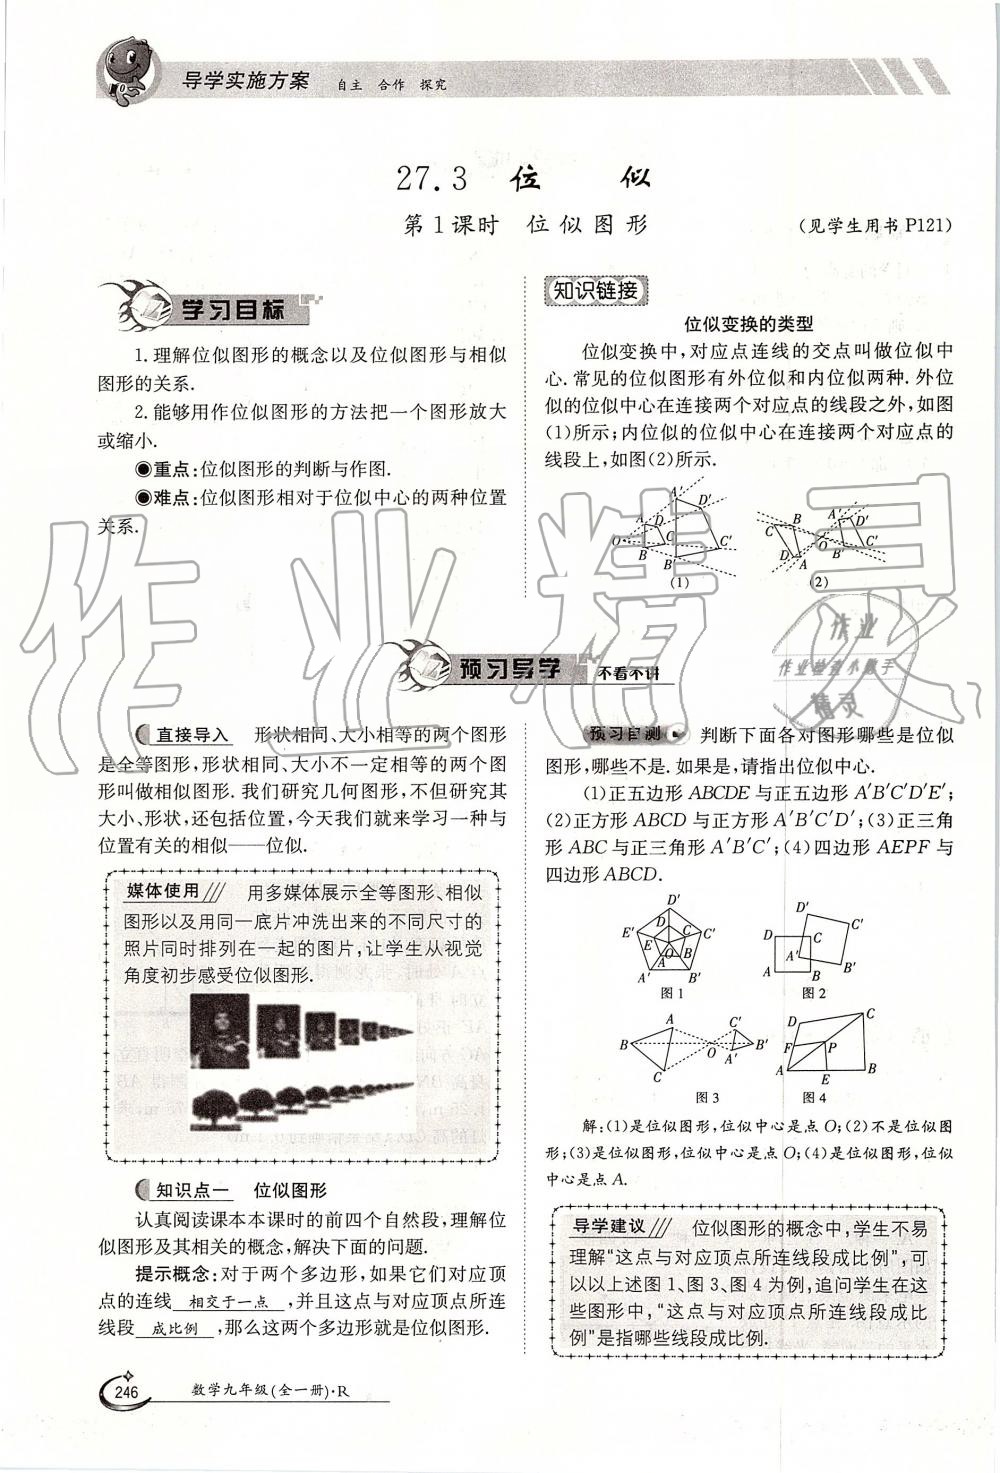 导学实施方案 自主 合作 探究
27.3 位 似
第1课时 位似图形 (见学生用书P121)
学习目标
1.理解位似图形的概念以及位似图形与相似
图形的关系.
2.能够用作位似图形的方法把一个图形放大
或缩小.
◉重点:位似图形的判断与作图.
◉难点:位似图形相对于位似中心的两种位置
关系.
知识链接
位似变换的类型
位似变换中,对应点连线的交点叫做位似中
心.常见的位似图形有外位似和内位似两种.外位
似的位似中心在连接两个对应点的线段之外,如图
(1)所示;内位似的位似中心在连接两个对应点的
线段上,如图(2)所示.
A' D' A D O C C' B B'
(1)
C B A' D' O D A B' C'
(2)
预习导学 不看不讲
直接导入 形状相同、大小相等的两个图形
是全等图形,形状相同、大小不一定相等的两个图
形叫做相似图形.我们研究几何图形,不但研究其
大小、形状,还包括位置,今天我们就来学习一种与
位置有关的相似——位似.
媒体使用 用多媒体展示全等图形、相似
图形以及用同一底片冲洗出来的不同尺寸的
照片同时排列在一起的图片,让学生从视觉
角度初步感受位似图形.
知识点一 位似图形
认真阅读课本本课时的前四个自然段,理解位
似图形及其相关的概念,解决下面的问题.
提示概念:对于两个多边形,如果它们对应顶
点的连线 相交于一点 ,并且这点与对应顶点所连
线段 成比例 ,那么这两个多边形就是位似图形.
预习自测 判断下面各对图形哪些是位似
图形,哪些不是.如果是,请指出位似中心.
(1)正五边形ABCDE与正五边形A'B'C'D'E';
(2)正方形ABCD与正方形A'B'C'D';(3)正三角
形ABC与正三角形A'B'C';(4)四边形AEPF与
四边形ABCD.
D' E' D C C' E O A B A' B'
图1
D' D C C' A' A B B'
图2
A C' B O B' A' C
图3
C D F P A E B
图4
解:(1)是位似图形,位似中心是点O;(2)不是位似图
形;(3)是位似图形,位似中心是点O;(4)是位似图形,位似
中心是点A.
导学建议 位似图形的概念中,学生不易
理解“这点与对应顶点所连线段成比例”,可
以以上述图1、图3、图4为例,追问学生在这
些图形中,“这点与对应顶点所连线段成比
例”是指哪些线段成比例.
246 数学九年级(全一册)·R
作业精灵
作业
作业检查小助手
精灵